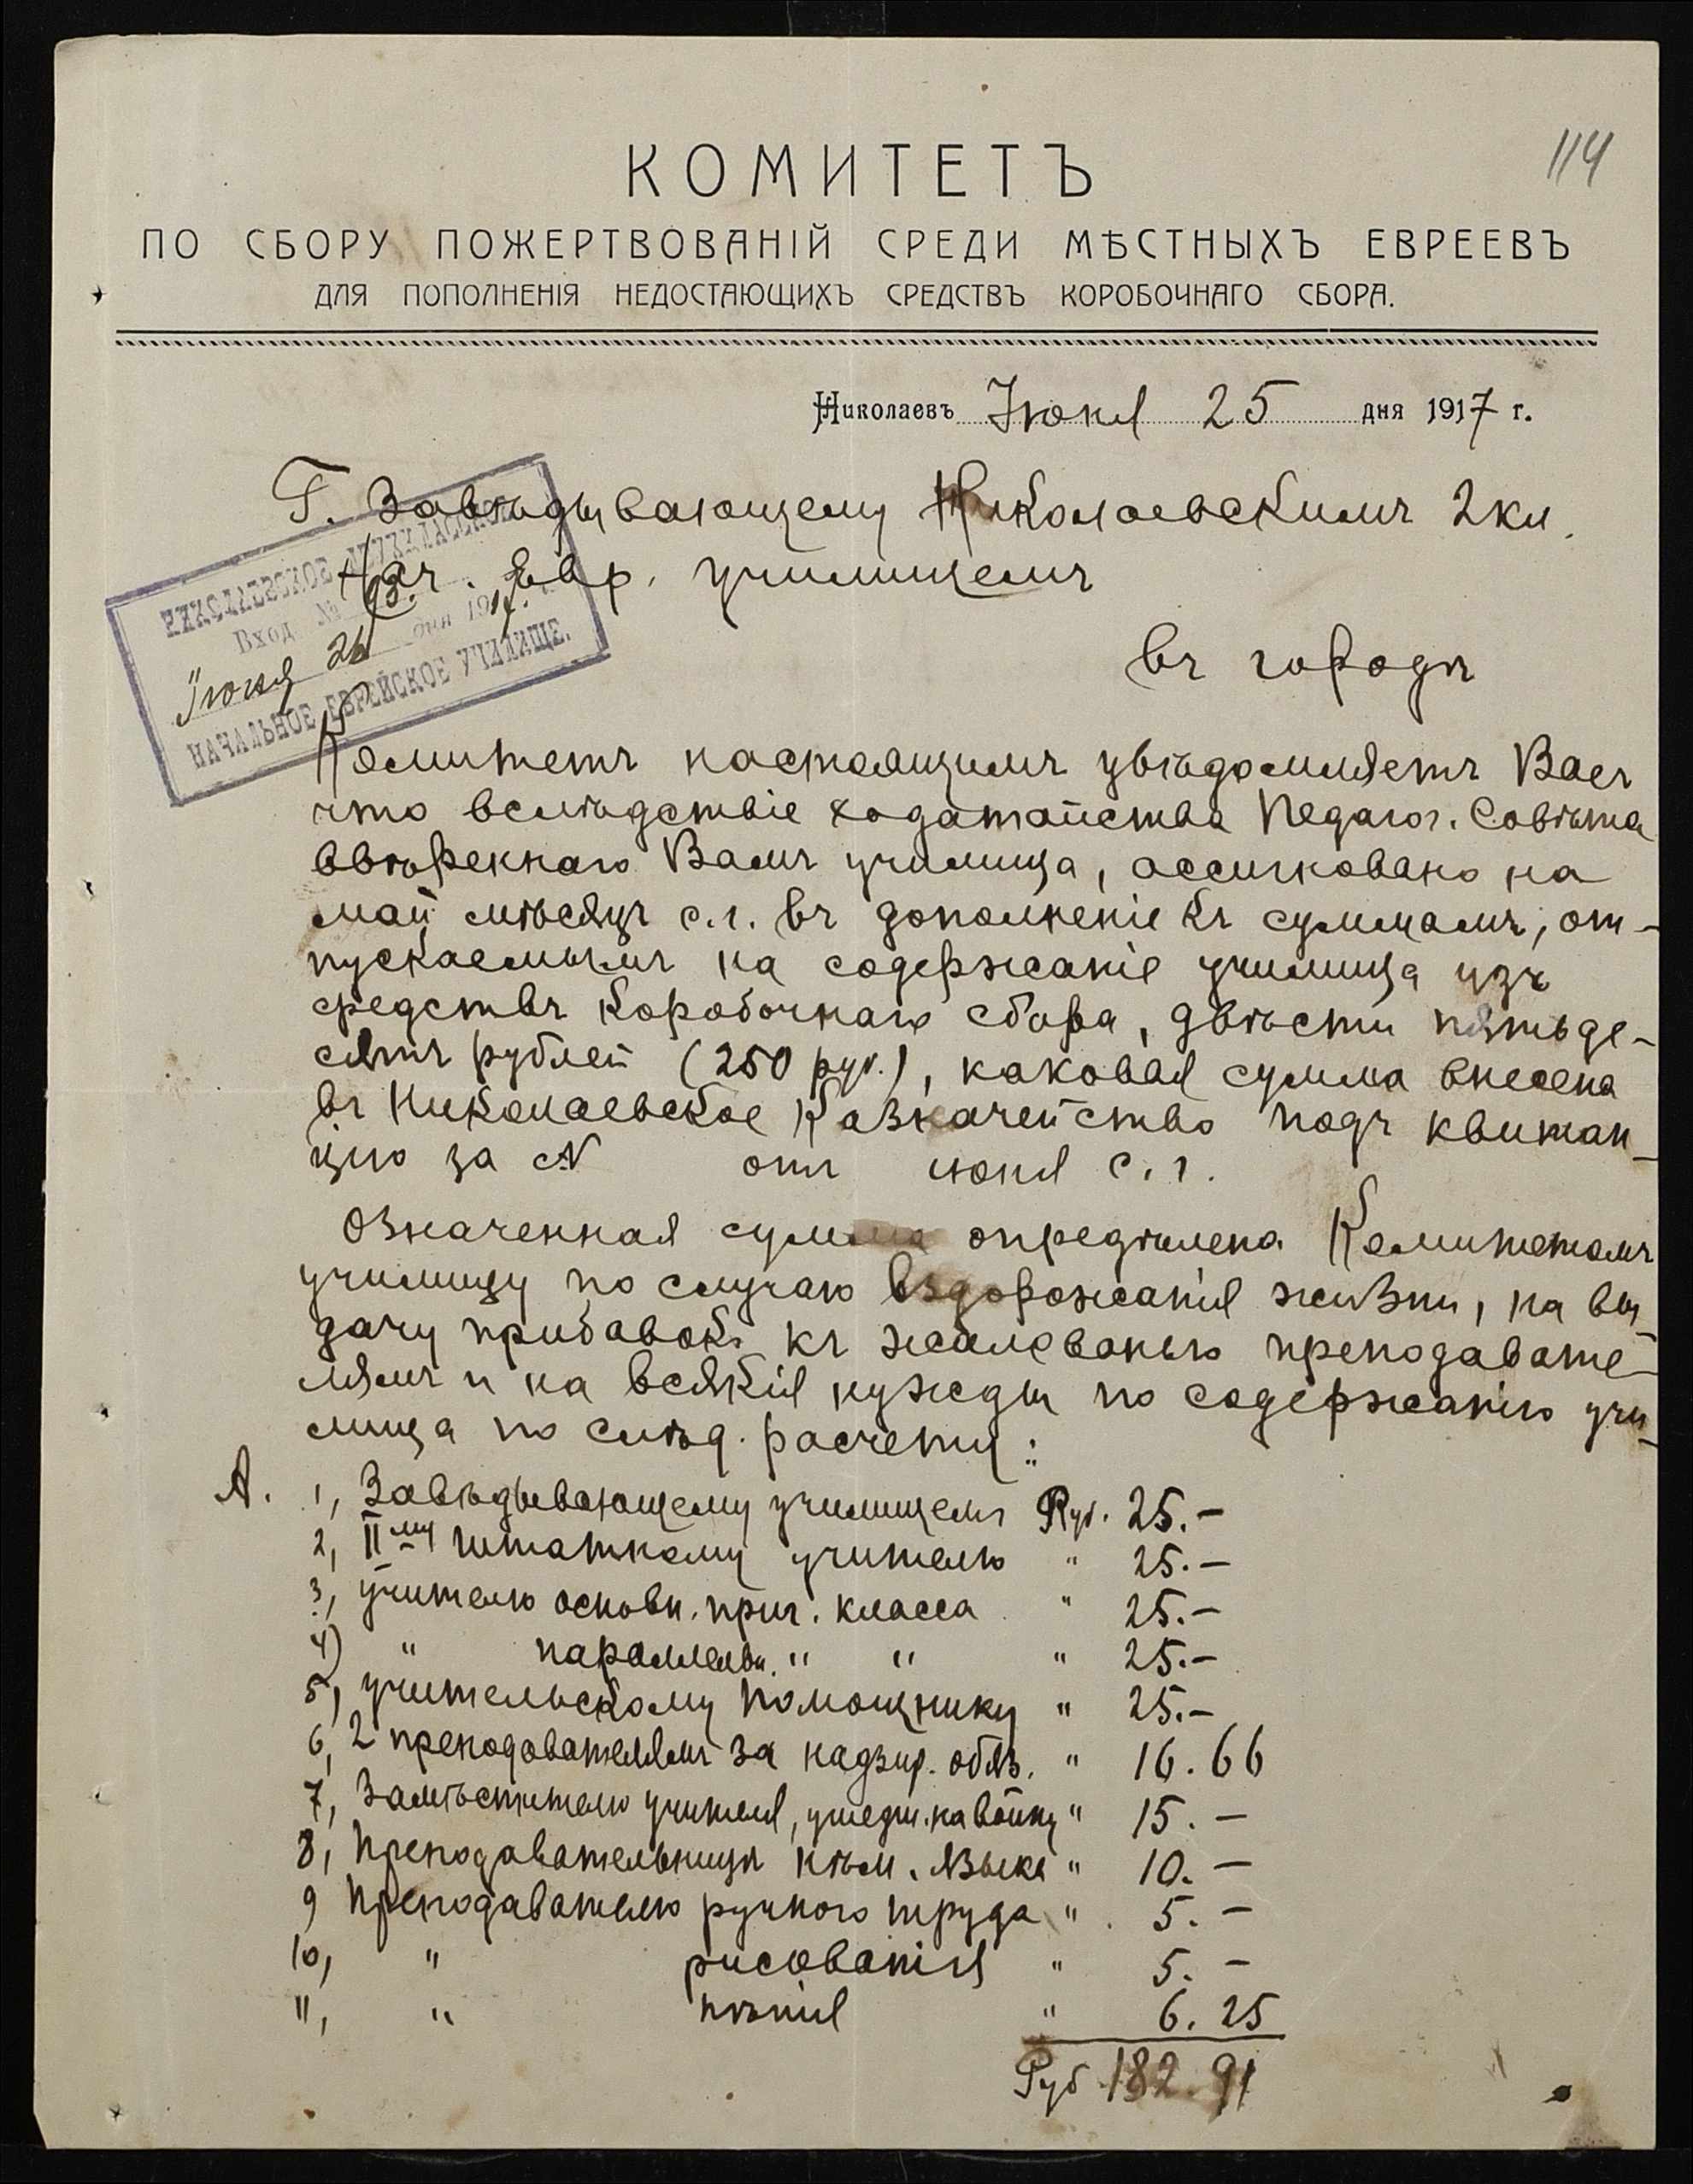 114
КОМИТЕТЪ
ПО СБОРУ ПОЖЕРТВОВАНІЙ СРЕДИ МѢСТНЫХЪ ЕВРЕЕВЪ
ДЛЯ ПОПОЛНЕНІЯ НЕДОСТАЮЩИХЪ СРЕДСТВЪ КОРОБОЧНАГО СБОРА.
Николаевъ Іюня 25 дня 1917 г.
Г. Завѣдывающему Николаевскимъ 2кл.
Нач. Евр. училищемъ
въ городѣ
НИКОЛАЕВСКОЕ ДВУХКЛАССНОЕ
Вход. № 93.
Іюня 26 дня 1917.
НАЧАЛЬНОЕ ЕВРЕЙСКОЕ УЧИЛИЩЕ.
Комитетъ настоящимъ увѣдомляетъ Васъ
что вслѣдствіе ходатайства Педагог. Совѣта
ввѣреннаго Вамъ училища, ассигновано на
май мѣсяцъ с.г. въ дополненіе къ суммамъ, от-
пускаемымъ на содержаніе училища изъ
средствъ коробочнаго сбора, двѣсти пятьде-
сятъ рублей (250 руб.), каковая сумма внесена
въ Николаевское Казначейство подъ квитан-
цію за № отъ іюня с.г.
Означенная сумма опредѣлена Комитетомъ
училищу по случаю вздорожанія жизни, на вы-
дачу прибавокъ къ жалованью преподавате-
лямъ и на всякія нужды по содержанію учи-
лища по слѣд. расчету:
А. 1, Завѣдывающему училищемъ Руб. 25.–
2, IIму штатному учителю " 25.–
3, учителю основн. приг. класса " 25.–
4) " параллельн. " " " 25.–
5, учительскому помощнику " 25.–
6, 2 преподавателямъ за надзир. обяз. " 16.66
7, Замѣстителю учителя, ушедш. на войну " 15.–
8, Преподавательницѣ нѣм. языка " 10.–
9 Преподавателю ручного труда " 5.–
10, " рисованія " 5.–
11, " пѣнія " 6.25
Руб. 182.91